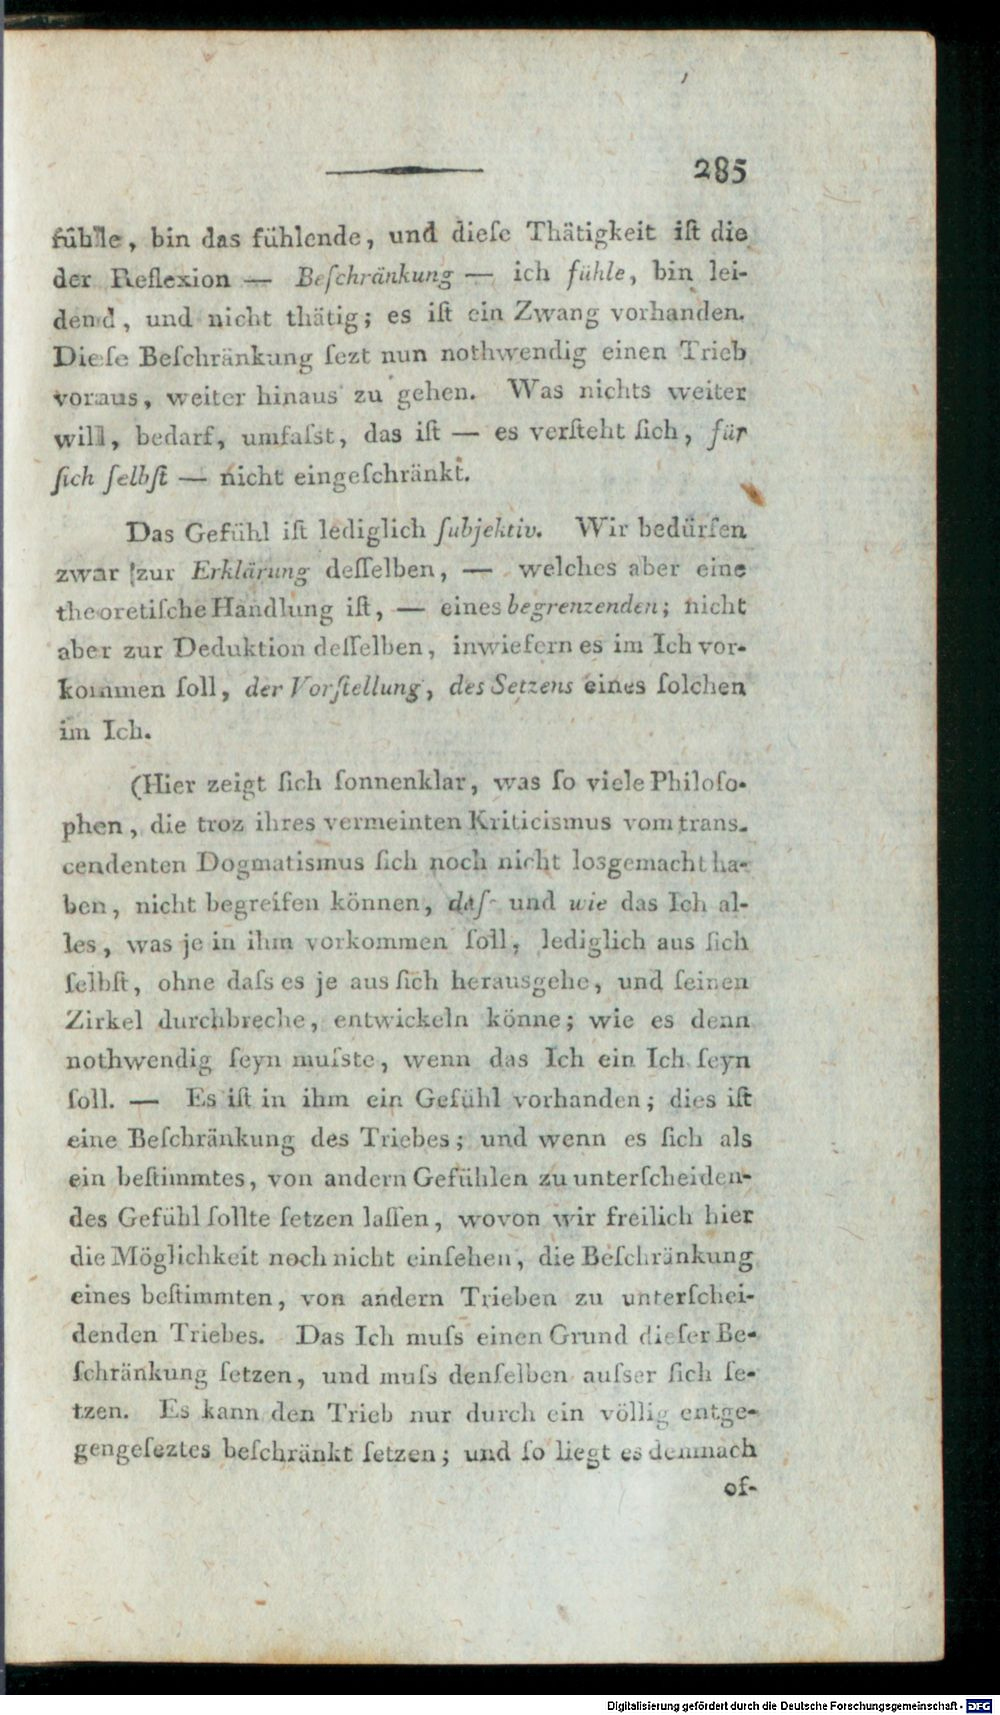 285
fühle, bin das fühlende, und dieſe Thätigkeit iſt die
der Reflexion — Beſchränkung — ich fühle, bin lei-
dend, und nicht thätig; es iſt ein Zwang vorhanden.
Dieſe Beſchränkung ſezt nun nothwendig einen Trieb
voraus, weiter hinaus zu gehen. Was nichts weiter
will, bedarf, umfaſst, das iſt — es verſteht ſich, für
ſich ſelbſt — nicht eingeſchränkt.
Das Gefühl iſt lediglich ſubjektiv. Wir bedürfen
zwar zur Erklärung deſſelben, — welches aber eine
theoretiſche Handlung iſt, — eines begrenzenden; nicht
aber zur Deduktion deſſelben, inwiefern es im Ich vor-
kommen ſoll, der Vorſtellung, des Setzens eines ſolchen
im Ich.
(Hier zeigt ſich ſonnenklar, was ſo viele Philoſo-
phen, die troz ihres vermeinten Kriticismus vom trans-
cendenten Dogmatismus ſich noch nicht losgemacht ha-
ben, nicht begreifen können, daſs und wie das Ich al-
les, was je in ihm vorkommen ſoll, lediglich aus ſich
ſelbſt, ohne daſs es je aus ſich herausgehe, und ſeinen
Zirkel durchbreche, entwickeln könne; wie es denn
nothwendig ſeyn muſste, wenn das Ich ein Ich ſeyn
ſoll. — Es iſt in ihm ein Gefühl vorhanden; dies iſt
eine Beſchränkung des Triebes; und wenn es ſich als
ein beſtimmtes, von andern Gefühlen zu unterſcheiden-
des Gefühl ſollte ſetzen laſſen, wovon wir freilich hier
die Möglichkeit noch nicht einſehen, die Beſchränkung
eines beſtimmten, von andern Trieben zu unterſchei-
denden Triebes. Das Ich muſs einen Grund dieſer Be-
ſchränkung ſetzen, und muſs denſelben auſser ſich ſe-
tzen. Es kann den Trieb nur durch ein völlig entge-
gengeſeztes beſchränkt ſetzen; und ſo liegt es demnach
of-
Digitalisierung gefördert durch die Deutsche Forschungsgemeinschaft - DFG